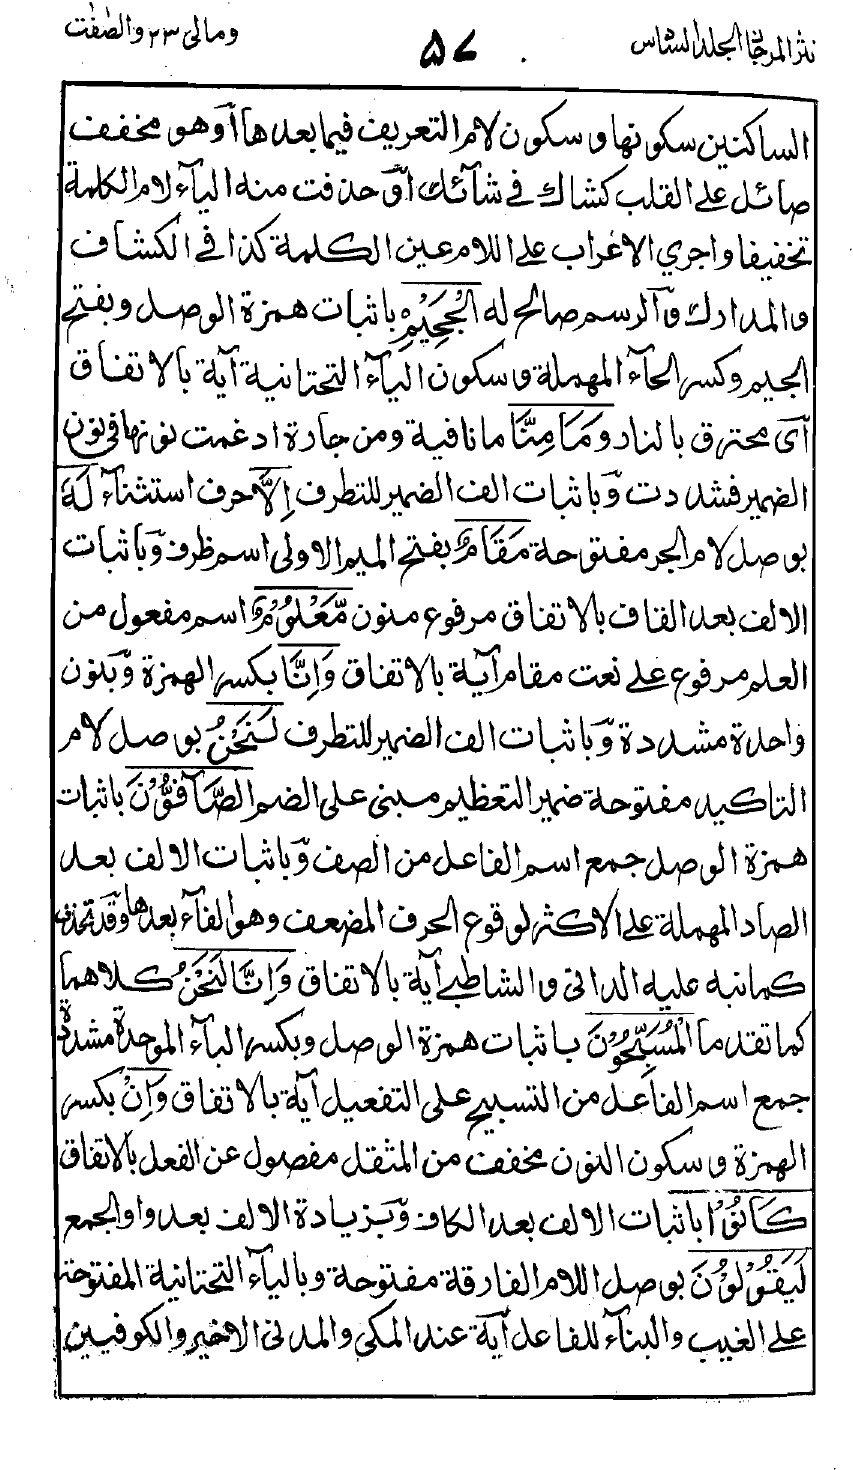 نثر المرجان الجلد السادس ۵۷ ومالی ۲۳ والصٰفٰت
الساكنين سكونها و سكون لام التعريف فيما بعدها أو هو مخفف
صائل على القلب كشاك في شآئك اوّ حذفت منه اليآء لام الكلمة
تخفيفا واجري الاعراب على اللام عين الكلمة كذا في الكشاف
و المدارك وّ الرسم صالح له الْجَحِيْمِ باثبات همزة الوصل و بفتح
الجيم وكسر الحآء المهملة و سكون اليآء التحتانية آية بالاتفاق
آى محترق بالنار وَمَا مِنَّا ما نافية ومن جارة ادغمت نونها فى نون
الضمير فشددت وّ باثبات الف الضمير للتطرف اِلَّا حرف استثنآء لَهٗ
بوصل لام الجر مفتوحة مَقَامٌ بفتح الميم الاولى اسم ظرف وّ باثبات
الالف بعد القاف بالاتفاق مرفوع منون مَّعْلُوْمٌ اسم مفعول من
العلم مرفوع على نعت مقام آية بالاتفاق وَاِنَّا بكسر الهمزة وّ بنون
واحدة مشددة وّ باثبات الف الضمير للتطرف لَنَحْنُ بوصل لام
التاكيد مفتوحة ضمير التعظيم مبنى على الضم الصَّآفُّوْنَ باثبات
همزة الوصل جمع اسم الفاعل من الصف وّ باثبات الالف بعد
الصاد المهملة على الاكثر لوقوع الحرف المضعف وهو الفآء بعدها وقد تحذف
كما نبه عليه الدانى و الشاطبى آية بالاتفاق وَاِنَّا لَنَحْنُ كلاهما
كما تقدما الْمُسَبِّحُوْنَ باثبات همزة الوصل و بكسر البآء الموحدة مشددة
جمع اسم الفاعل من التسبيح على التفعيل آية بالاتفاق وَاِنْ بكسر
الهمزة و سكون النون مخففت من المثقل مفصول عن الفعل بالاتفاق
كَانُوْا باثبات الالف بعد الكاف وّ بزيادة الالف بعد واو الجمع
لَيَقُوْلُوْنَ بوصل اللام الفارقة مفتوحة و باليآء التحتانية المفتوحة
على الغيب والبنآء للفاعل آية عند المكى والمدنى الاخير والكوفيين